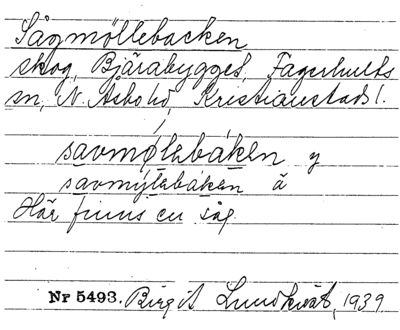 Sågmöllebacken
skog, Bjärabygget, Fagerhults
sn, N. Åsbo hd, Kristianstads l.
savmølebáken y
savmýlebáken ä
Här finns en såg
Nr 5493. Birgit Lundkvist, 1939